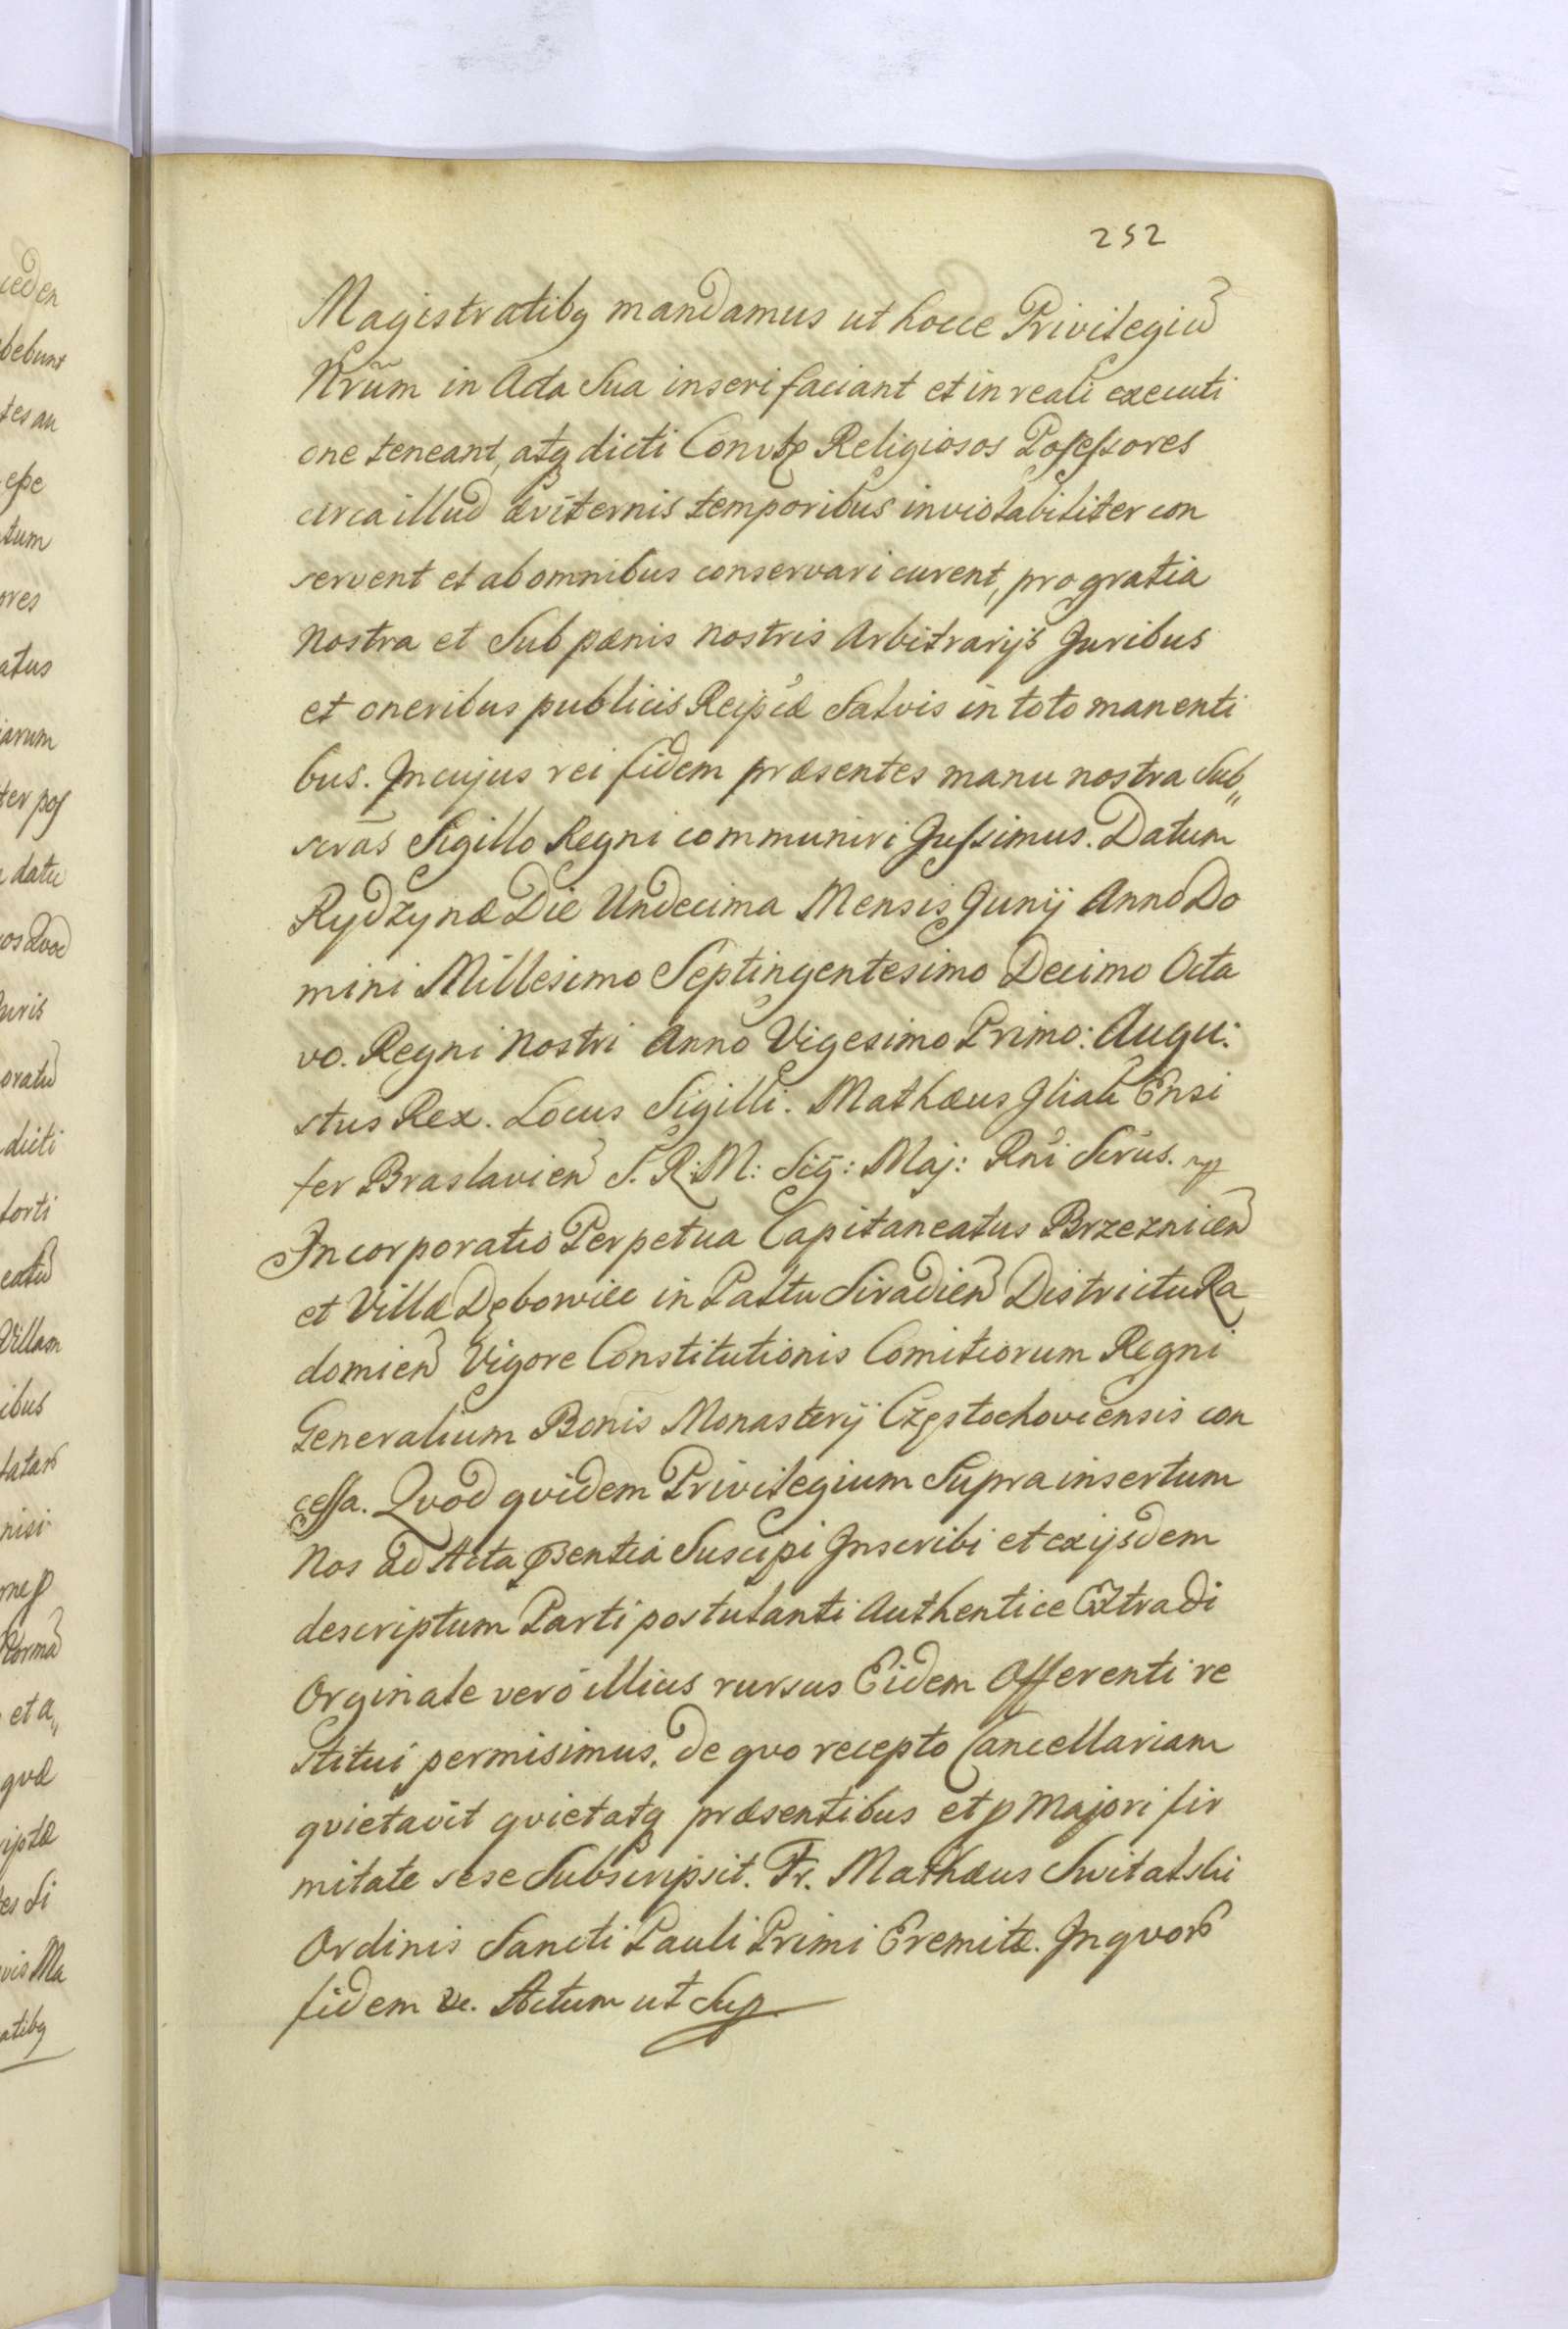 252
Magistratibq mandamus ut hocce Privilegiu͂
Nrũm in Acta Sua inseri faciant et in reali executi
one teneant, atq dicti Convtq Religiosos Possessores
circa illud æviternis temporibus inviolabiliter con
servent et ab omnibus conservari curent, pro gratia
nostra et Sub pænis nostris Arbitrarijs Juribus
et oneribus publicis Reipcæ Salvis in toto manenti
bus. In cujus rei fidem præsentes manu nostra Sub„
scras Sigillo Regni communiri Jussimus. Datum
Rydzynæ Die Undecima Mensis Junij Anno Do
mini Millesimo Septingentesimo Decimo Octa
vo. Regni Nostri Anno Vigesimo Primo: Augu:
stus Rex. Locus Sigilli. Mathæus Ensi
fer Braslavien S. R: M: Sig: Maj: Rni Scrius. mp
Incorporatio Perpetua Capitaneatus Brzeznicen
et Villæ Dębowiec in Palltu Siradien Districtu Ra
domien Vigore Constitutionis Comitiorum Regni
Generalium Bonis Monasterij Częstochoviensis con
cessa. Qvod qvidem Privilegium Supra insertum
Nos ad Acta pñsentia Suscipi Inscribi et ex ijsdem
descriptum Parti postulanti Authentice Extradi
Orginale verò illius rursus Eidem Offerenti re
stitui permisimus. de qvo recepto Cancellariam
qvietavit qvietatq præsentibus et p Majori fir
mitate sese Subscripsit. Fr. Mathæus
Ordinis Sancti Pauli Primi Eremitæ. In qvor
fidem &c. Actum ut Sup